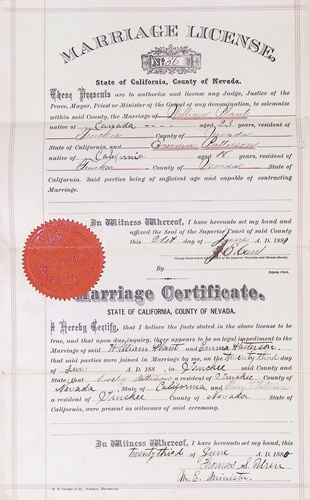 MARRIAGE LICENSE,
No. 36
State of California, County of Nevada.
These Presents are to authorize and license any Judge, Justice of the
Peace, Mayor, Priest or Minister of the Gospel of any denomination, to solemnize
within said County, the Marriage of William Plant
native of Canada aged 23 years, resident of
Truckee County of Nevada
State of California, and Emma Patterson
native of California aged 18 years, resident of
Truckee County of Nevada State of
California. Said parties being of sufficient age and capable of contracting
Marriage.
In Witness Whereof, I have hereunto set my hand and
affixed the Seal of the Superior Court of said County
this 21st day of June A. D. 1880
By
Deputy Clerk.
Marriage Certificate.
STATE OF CALIFORNIA, COUNTY OF NEVADA.
I Hereby Certify, that I believe the facts stated in the above license to be
true, and that upon due inquiry, there appears to be no legal impediment to the
Marriage of said William Plant and Emma Patterson
that said parties were joined in Marriage by me, on the twenty third day
of June A. D. 188 in Truckee said County and
State; that Patterson a resident of Truckee County of
Nevada State of California, and
a resident of Truckee County of Nevada State of
California, were present as witnesses of said ceremony.
In Witness Whereof, I have hereunto set my hand, this
twenty third of June A. D. 1880
Thomas S. Uren
M. E. Minister